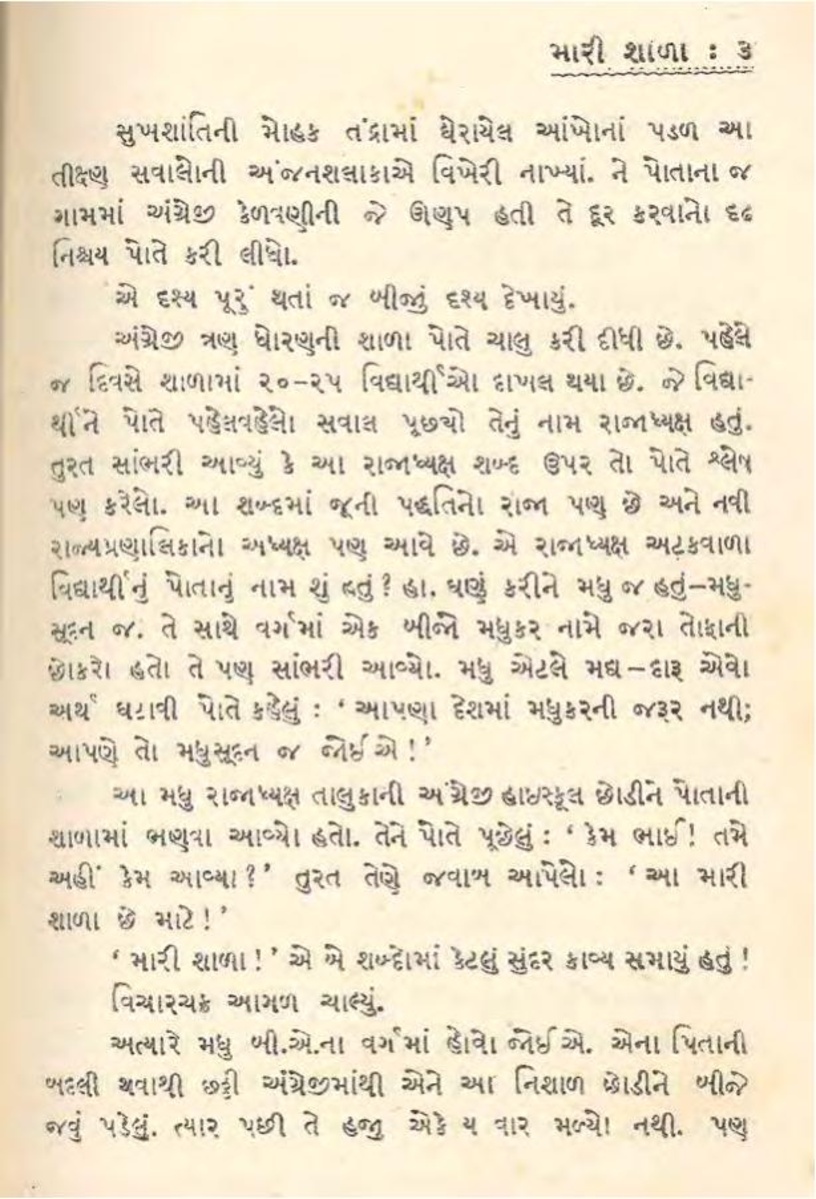 મારી શાળા : ૩
સુખશાંતિની મોહક તંદ્રામાં ઘેરાયેલ આંખોનાં પડળ આ
તીક્ષ્ણ સવાલોની અંજનશલાકાએ વિખેરી નાખ્યાં. ને પોતાના જ
ગામમાં અંગ્રેજી કેળવણીની જે ઊણપ હતી તે દૂર કરવાનો દૃઢ
નિશ્ચય પોતે કરી લીધો.
એ દૃશ્ય પૂરું થતાં જ બીજું દૃશ્ય દેખાયું.
અંગ્રેજી ત્રણ ધોરણની શાળા પોતે ચાલુ કરી દીધી છે. પહેલે
જ દિવસે શાળામાં ૨૦–૨૫ વિદ્યાર્થીઓ દાખલ થયા છે. જે વિદ્યા-
ર્થીને પોતે પહેલવહેલો સવાલ પૂછ્યો તેનું નામ રાજાધ્યક્ષ હતું.
તુરત સાંભરી આવ્યું કે આ રાજાધ્યક્ષ શબ્દ ઉપર તો પોતે શ્લેષ
પણ કરેલો. આ શબ્દમાં જૂની પદ્ધતિનો રાજા પણ છે અને નવી
રાજ્યપ્રણાલિકાનો અધ્યક્ષ પણ આવે છે. એ રાજાધ્યક્ષ અટકવાળા
વિદ્યાર્થીનું પોતાનું નામ શું હતું? હા. ઘણું કરીને મધુ જ હતું–મધુ-
સૂદન જ. તે સાથે વર્ગમાં એક બીજો મધુકર નામે જરા તોફાની
છોકરો હતો તે પણ સાંભરી આવ્યો. મધુ એટલે મદ્ય–દારૂ એવો
અર્થ ઘટાવી પોતે કહેલું : ‘આપણા દેશમાં મધુકરની જરૂર નથી;
આપણે તો મધુસૂદન જ જોઈએ!’
આ મધુ રાજાધ્યક્ષ તાલુકાની અંગ્રેજી હાઇસ્કૂલ છોડીને પોતાની
શાળામાં ભણવા આવ્યો હતો. તેને પોતે પૂછેલું : ‘કેમ ભાઈ! તમે
અહીં કેમ આવ્યા?’ તુરત તેણે જવાબ આપેલો : ‘આ મારી
શાળા છે માટે!’
‘મારી શાળા!’ એ બે શબ્દોમાં કેટલું સુંદર કાવ્ય સમાયું હતું!
વિચારચક્ર આગળ ચાલ્યું.
અત્યારે મધુ બી.એ.ના વર્ગમાં હોવો જોઈએ. એના પિતાની
બદલી થવાથી છઠ્ઠી અંગ્રેજીમાંથી એને આ નિશાળ છોડીને બીજે
જવું પડેલું. ત્યાર પછી તે હજી એકે ય વાર મળ્યો નથી. પણ